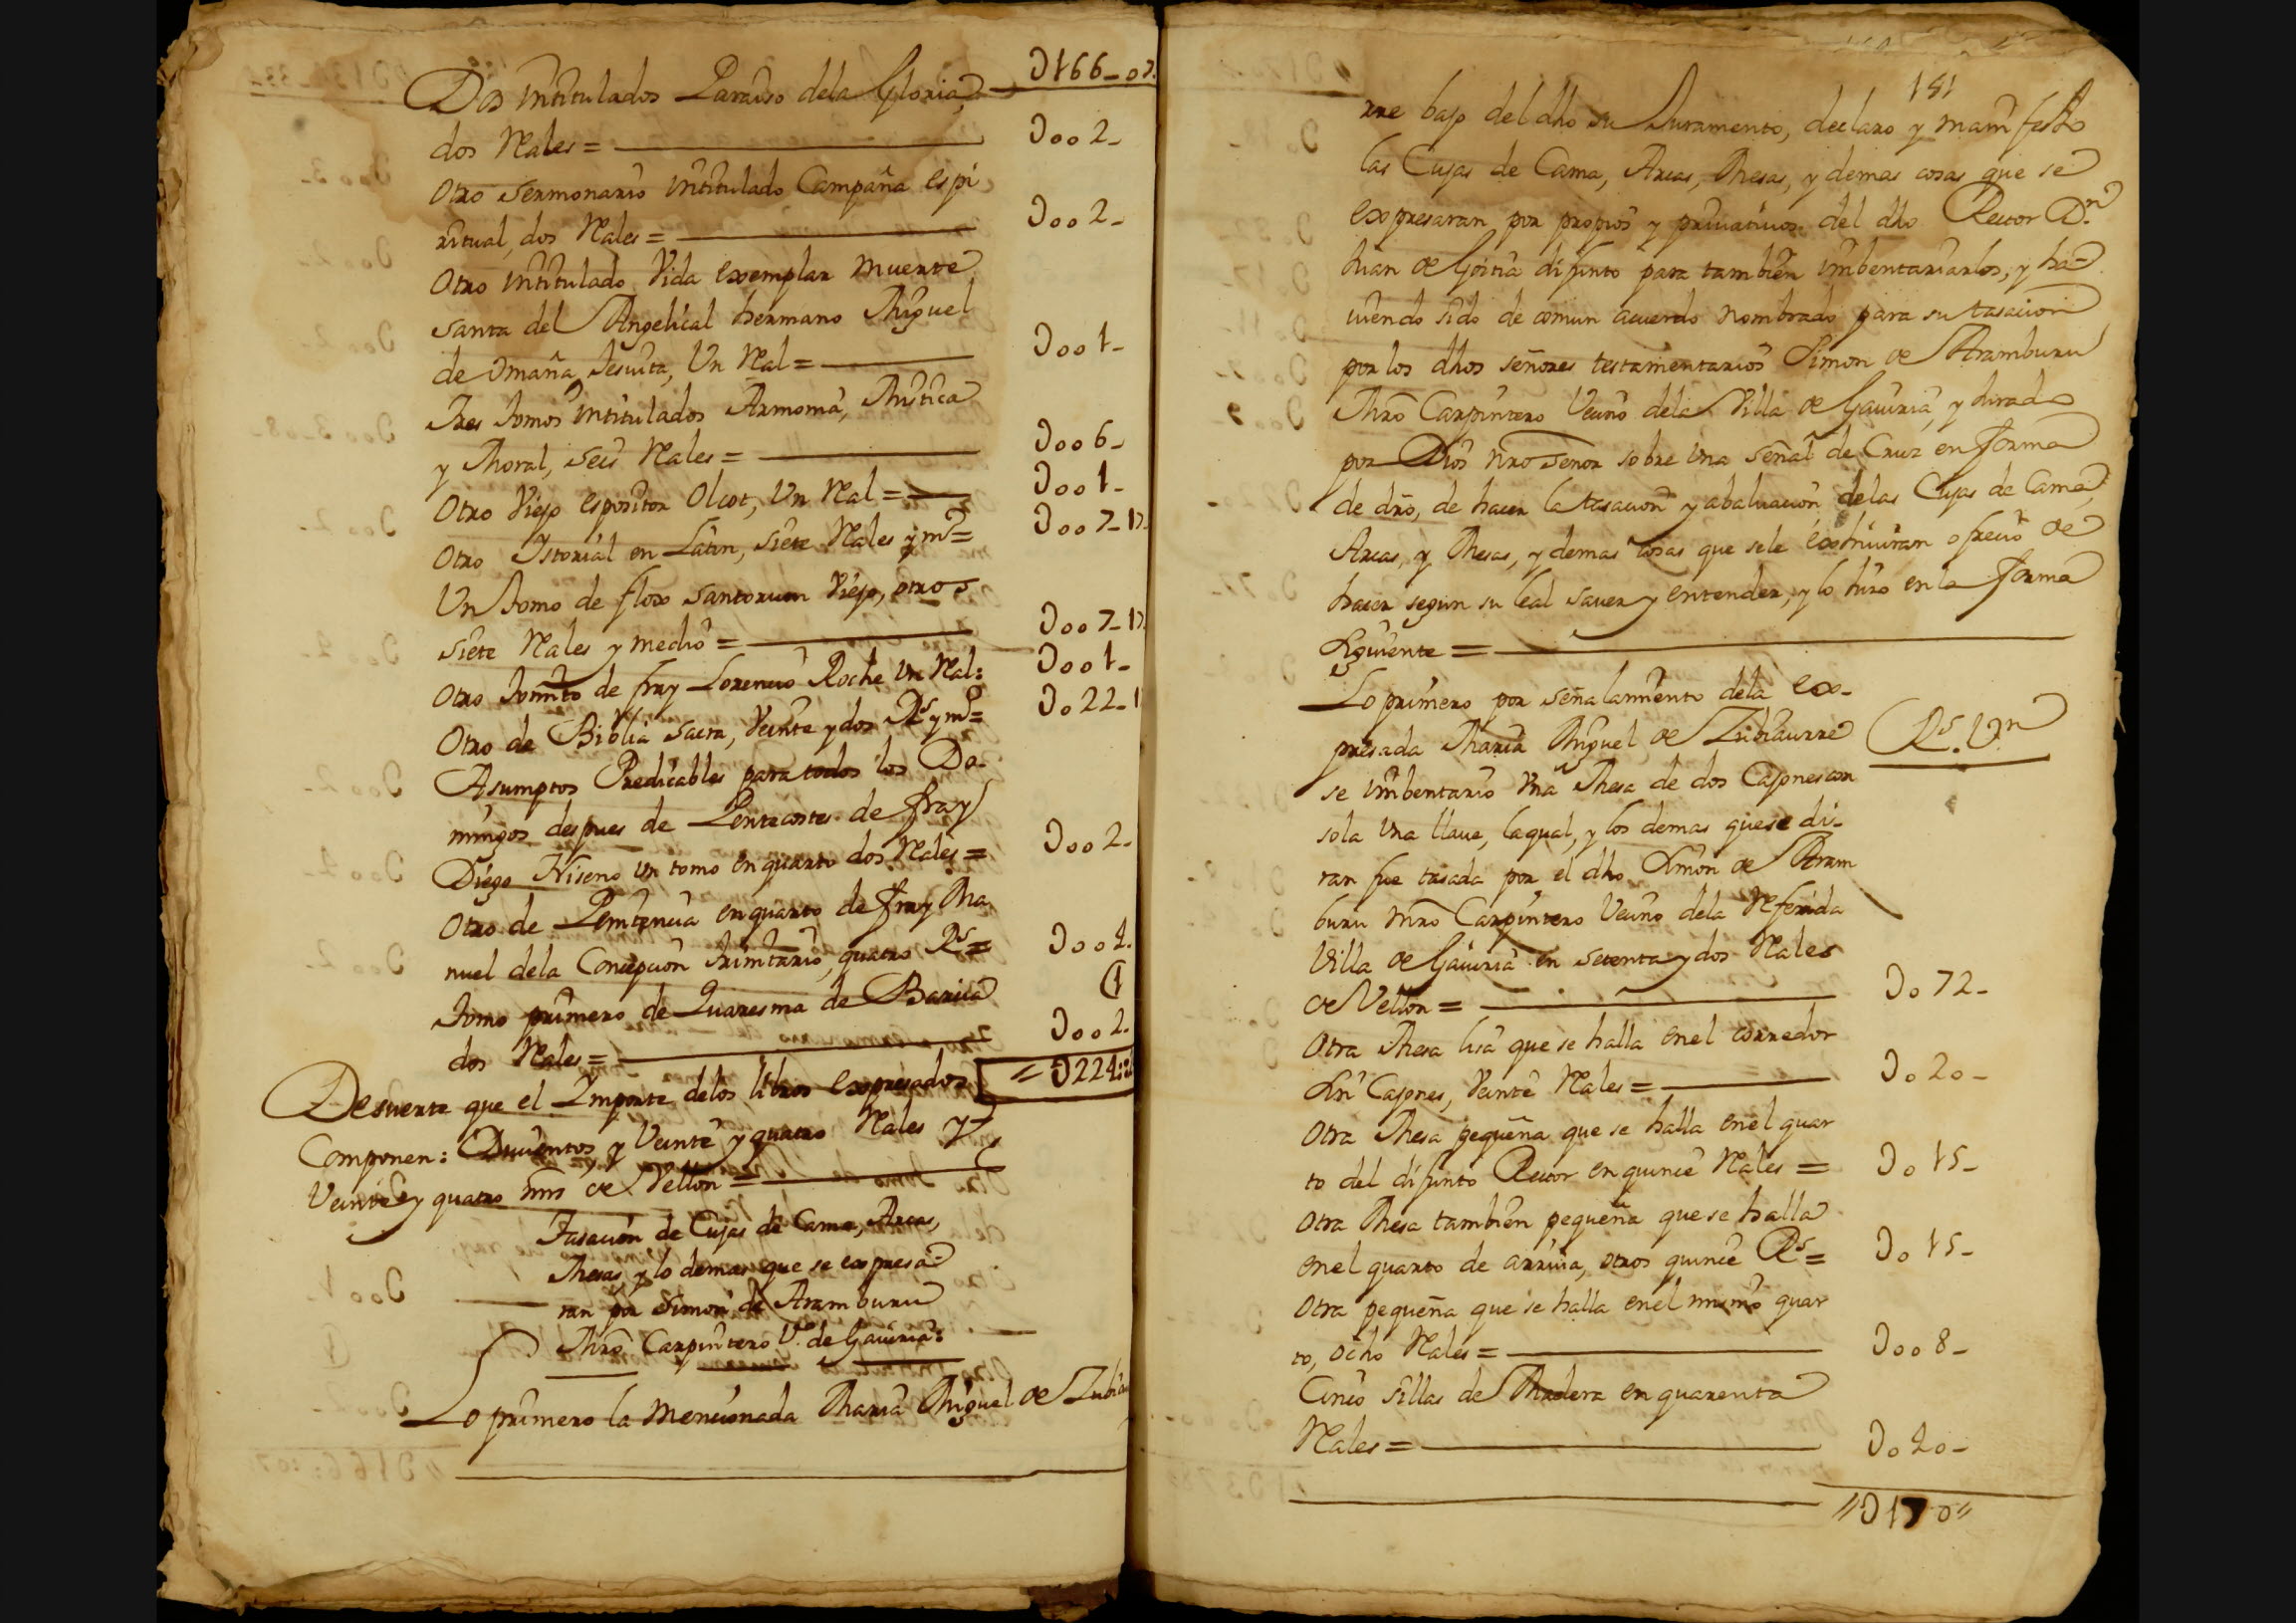 Ɔ166-07.
Dos intitulados Paraiso dela Gloria,
dos Rales = Ɔ002-
otro sermonario intitulado Campaña espi
ritual, dos Rales = Ɔ002-
otro intitulado Vida exemplar muerte
santa del Angelical hermano Miguel
de Omaña Jesuita, Un Ral = Ɔ001-
Tres tomos intitulados Armonia, Mistica
y Moral, seis Rales = Ɔ006-
Otro Viejo espositor Olcot, Un Ral = Ɔ001-
Otro Istorial en Latin, siete Rales y mº = Ɔ007-17
Un tomo de flox santorum Viejo, otros
siete Rales y medio = Ɔ007-17
Otro tomito de fray Lorencio Roche Un Ral: Ɔ001-
Otro de Biblia sacra, Veinte y dos Rs y mº = Ɔ022-1
Asumptos Predicables para todos los Do-
mingos despues de Pentecostes de fray
Diego Niseno un tomo en quarto dos Rales = Ɔ002-
Otro de Penitencia en quarto de fray Ma
nuel dela Concepcion trinitario, quatro Rs = Ɔ004.
Tomo primero de Quaresma de Barcia
dos Rales = Ɔ002.
De suerte que el Importe delos libros expresados = Ɔ224:2
Componen: Ducientos y Veinte y quatro Rales y
Veinte y quatro mrs de Vellon =
Tasacion de Cujas de Cama, Arcas,
Mesas, y lo demas que se expresa-
ran por Simon de Aramburu
Mro Carpintero Vº de Gaviria:
Lo primero la mencionada Maria Miguel de Zubiau
181
rre bajo del dho su Juramento, declaro y manifesto
las Cujas de Cama, Arcas, Mesas, y demas cosas que se
expresaran por propios y privativos del dho Rector Dn.
Juan de Goitia difunto para tambien imbentariarlos, y ha-
viendo sido de comun acuerdo nombrado para su tasacion
por los dhos señores testamentarios Simon de Aramburu
Mro Carpintero Vecino dela Villa de Gaviria, y Jurado
por Dios nro señor sobre Una señal de Cruz en forma
de dro, de hacer la tasacion y abaluacion delas Cujas de Cama,
Arcas, y Mesas, y demas cosas que sele exshiviran ofrecio de
hacer segun su leal saver y entender, y lo hizo en la forma
siguiente =
Lo primero por señalamiento dela ex-
presada Maria Miguel de Zubiaurre Rs. Vn
se imbentario Una Mesa de dos Cajones con
sola Una llave, laqual, y los demas que se di-
ran fue tasada por el dho Simon de Aram
buru mro Carpintero Vecino dela Referida
Villa de Gaviria en setenta y dos Rales
de Vellon = Ɔ072-
Otra Mesa lisa que se halla enel corredor
sin Cajones, Veinte Rales = Ɔ020-
Otra Mesa pequeña que se halla enel quar
to del difunto Rector en quince Rales = Ɔ015-
Otra Mesa tambien pequeña que se halla
enel quarto de arriva, otros quince Rs = Ɔ015-
Otra pequeña que se halla enel mismo quar
to, ocho Rales = Ɔ008-
Cinco sillas de Madera en quarenta
Rales = Ɔ040-
"Ɔ170"